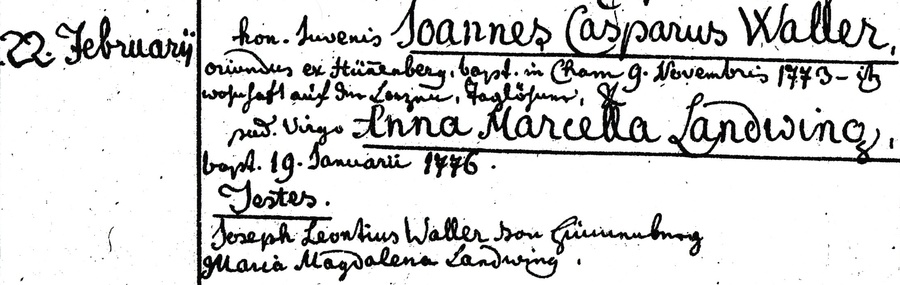 22. Februarij
hon. Juvenis Joannes Casparus Waller,
oriundus ex Hünenberg, bapt. in Cham 9. Novembris 1773 –
wohnhaft auf der Taglöhner, &
pud. Virgo Anna Marcella Landwing,
bapt. 19. Januarii 1776.
Testes.
Joseph Leontius Waller von Hünenberg
Maria Magdalena Landwing.